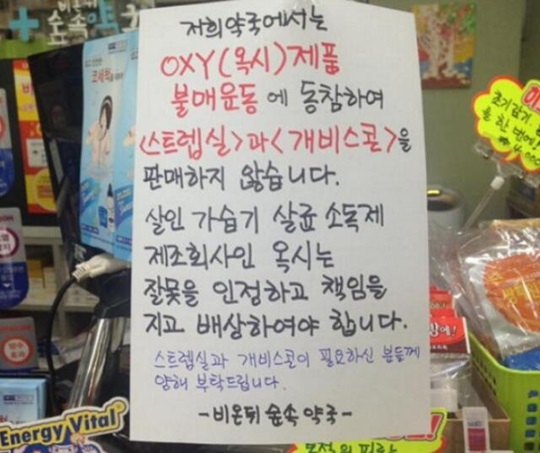 저희약국에서는
OXY(옥시)제품
불매운동에 동참하여
<스트렙실>과<개비스콘>을
판매하지 않습니다.
살인 가습기 살균 소독제
제조회사인 옥시는
잘못을 인정하고 책임을
지고 배상하여야 합니다.
스트렙실과 개비스콘이 필요하신 분들께
양해 부탁드립니다.
-비온뒤 숲속 약국-
초기감기
한 번에!
4,000
Energy Vital